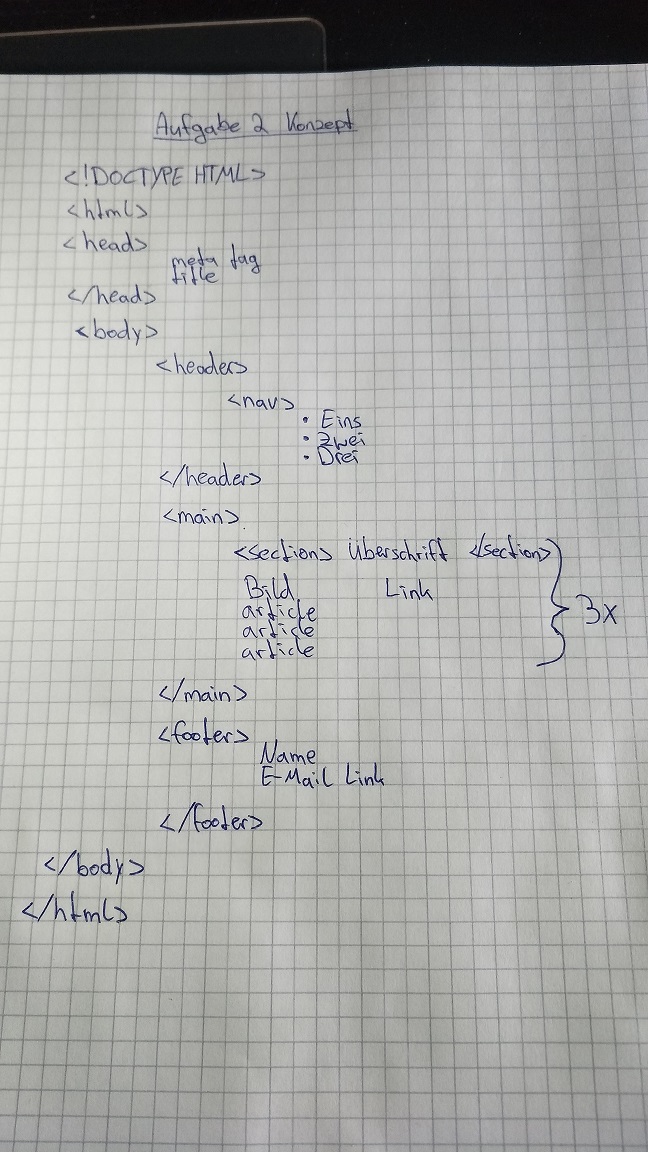 Aufgabe 2 Konzept
<!DOCTYPE HTML>
<html>
<head>
meta tag
title
</head>
<body>
<header>
<nav>
• Eins
• Zwei
• Drei
</header>
<main>
<section> Überschrift </section>
Bild Link
article
article
article
3x
</main>
<footer>
Name
E-Mail Link
</footer>
</body>
</html>